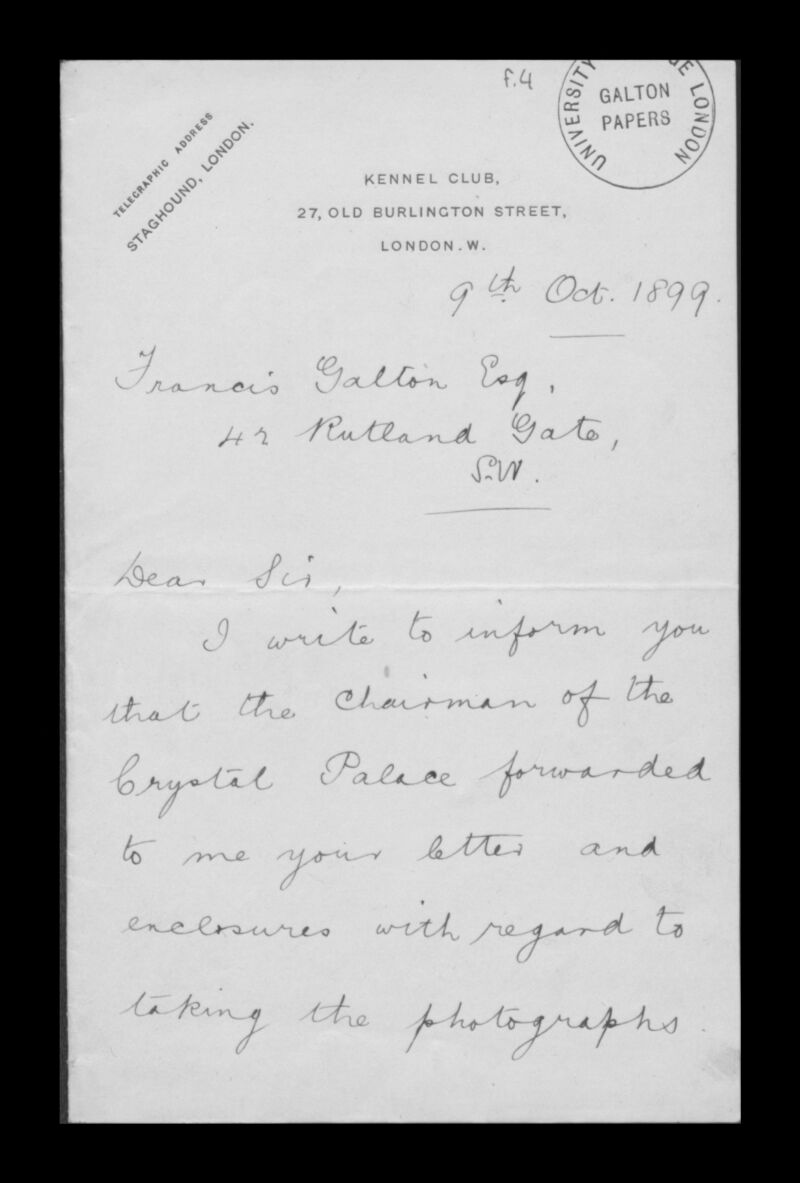 f.4
UNIVERSITY GE LONDON
GALTON
PAPERS
TELEGRAPHIC ADDRESS
STAGHOUND, LONDON.
KENNEL CLUB,
27, OLD BURLINGTON STREET,
LONDON. W.
9th Oct. 1899.
Francis Galton Esq,
42 Rutland Gate,
S.W.
Dear Sir,
I write to inform you
that the Chairman of the
Crystal Palace forwarded
to me your letter and
enclosures with regard to
taking the photographs